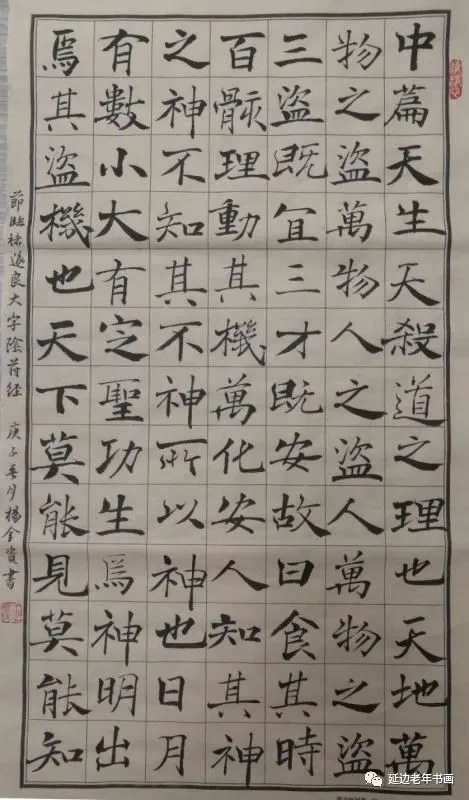 中篇天生天殺道之理也天地萬
物之盜萬物人之盜人萬物之盜
三盜既冝三才既安故曰食其時
百骸理動其機萬化安人知其神
之神不知其不神所以神也日月
有數小大有㝎聖功生焉神明出
焉其盜機也天下莫能見莫能知
節臨褚遂良大字陰苻經 庚子春月楊金資書
延边老年书画